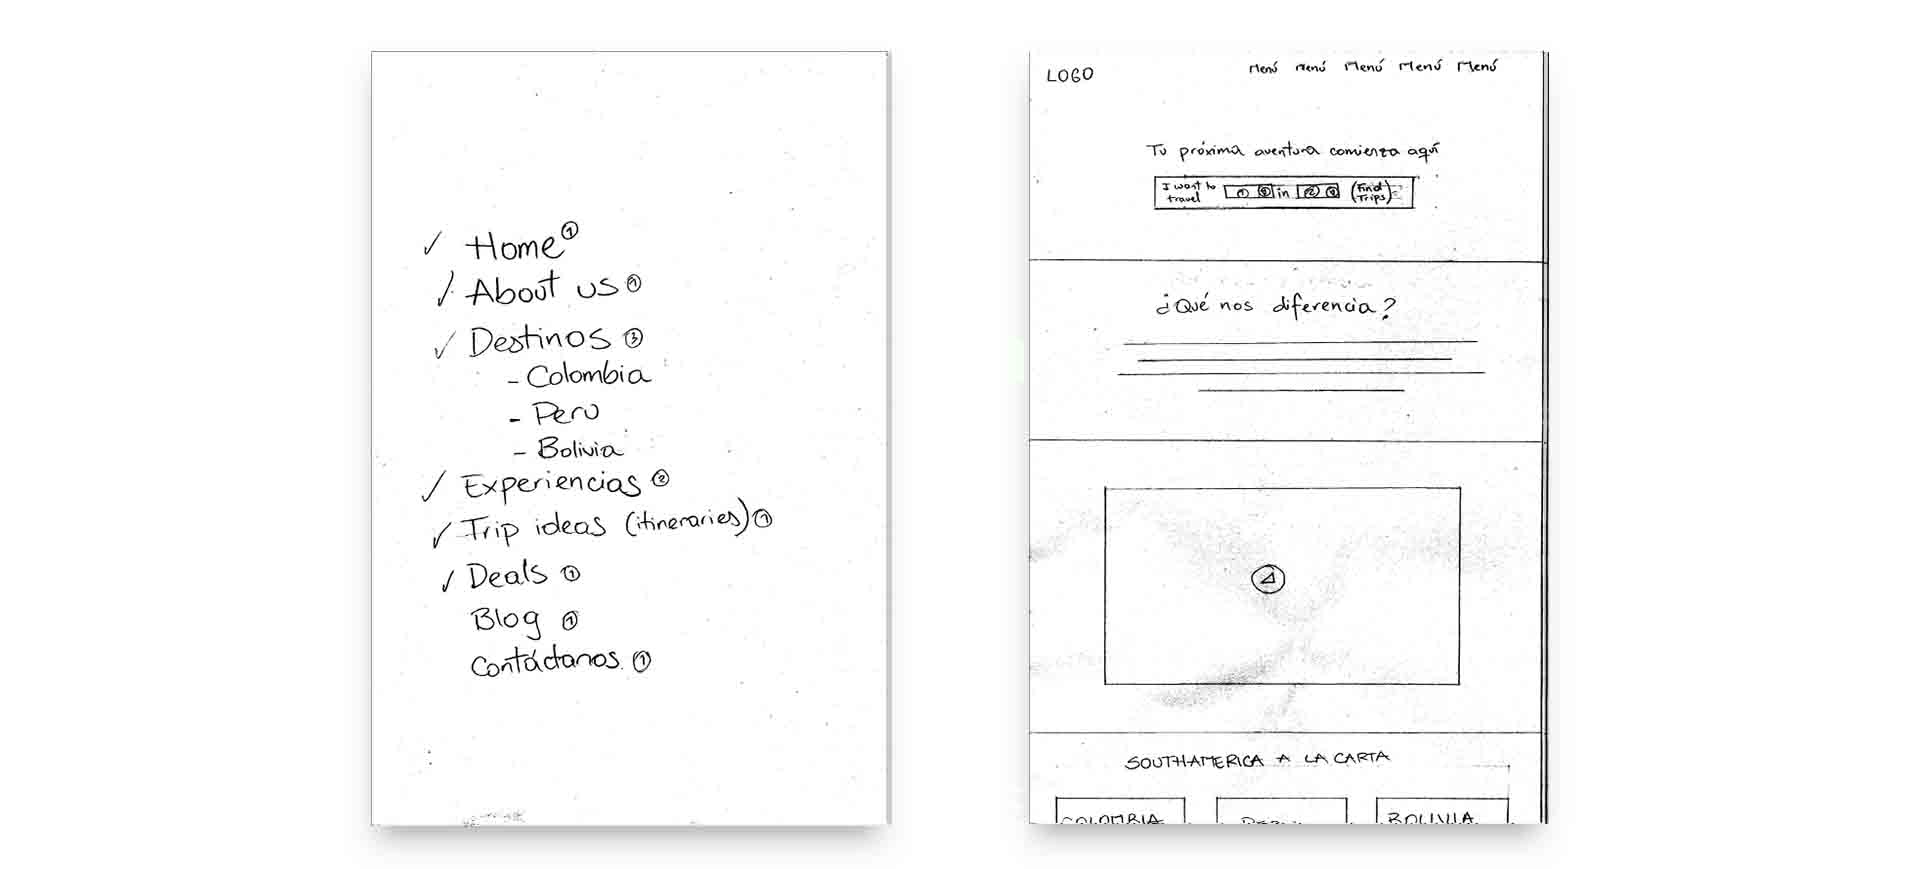 ✓ Home ①
✓ About us ①
✓ Destinos ③
- Colombia
- Peru
- Bolivia
✓ Experiencias ②
✓ Trip ideas (itineraries) ①
✓ Deals ①
Blog ①
Contáctanos. ①
LOGO
Menú Menú Menú Menú Menú
Tu próxima aventura comienza aquí
I want to
travel
in
(Find
Trips)
¿Qué nos diferencia?
SOUTHAMERICA A LA CARTA
COLOMBIA
BOLIVIA